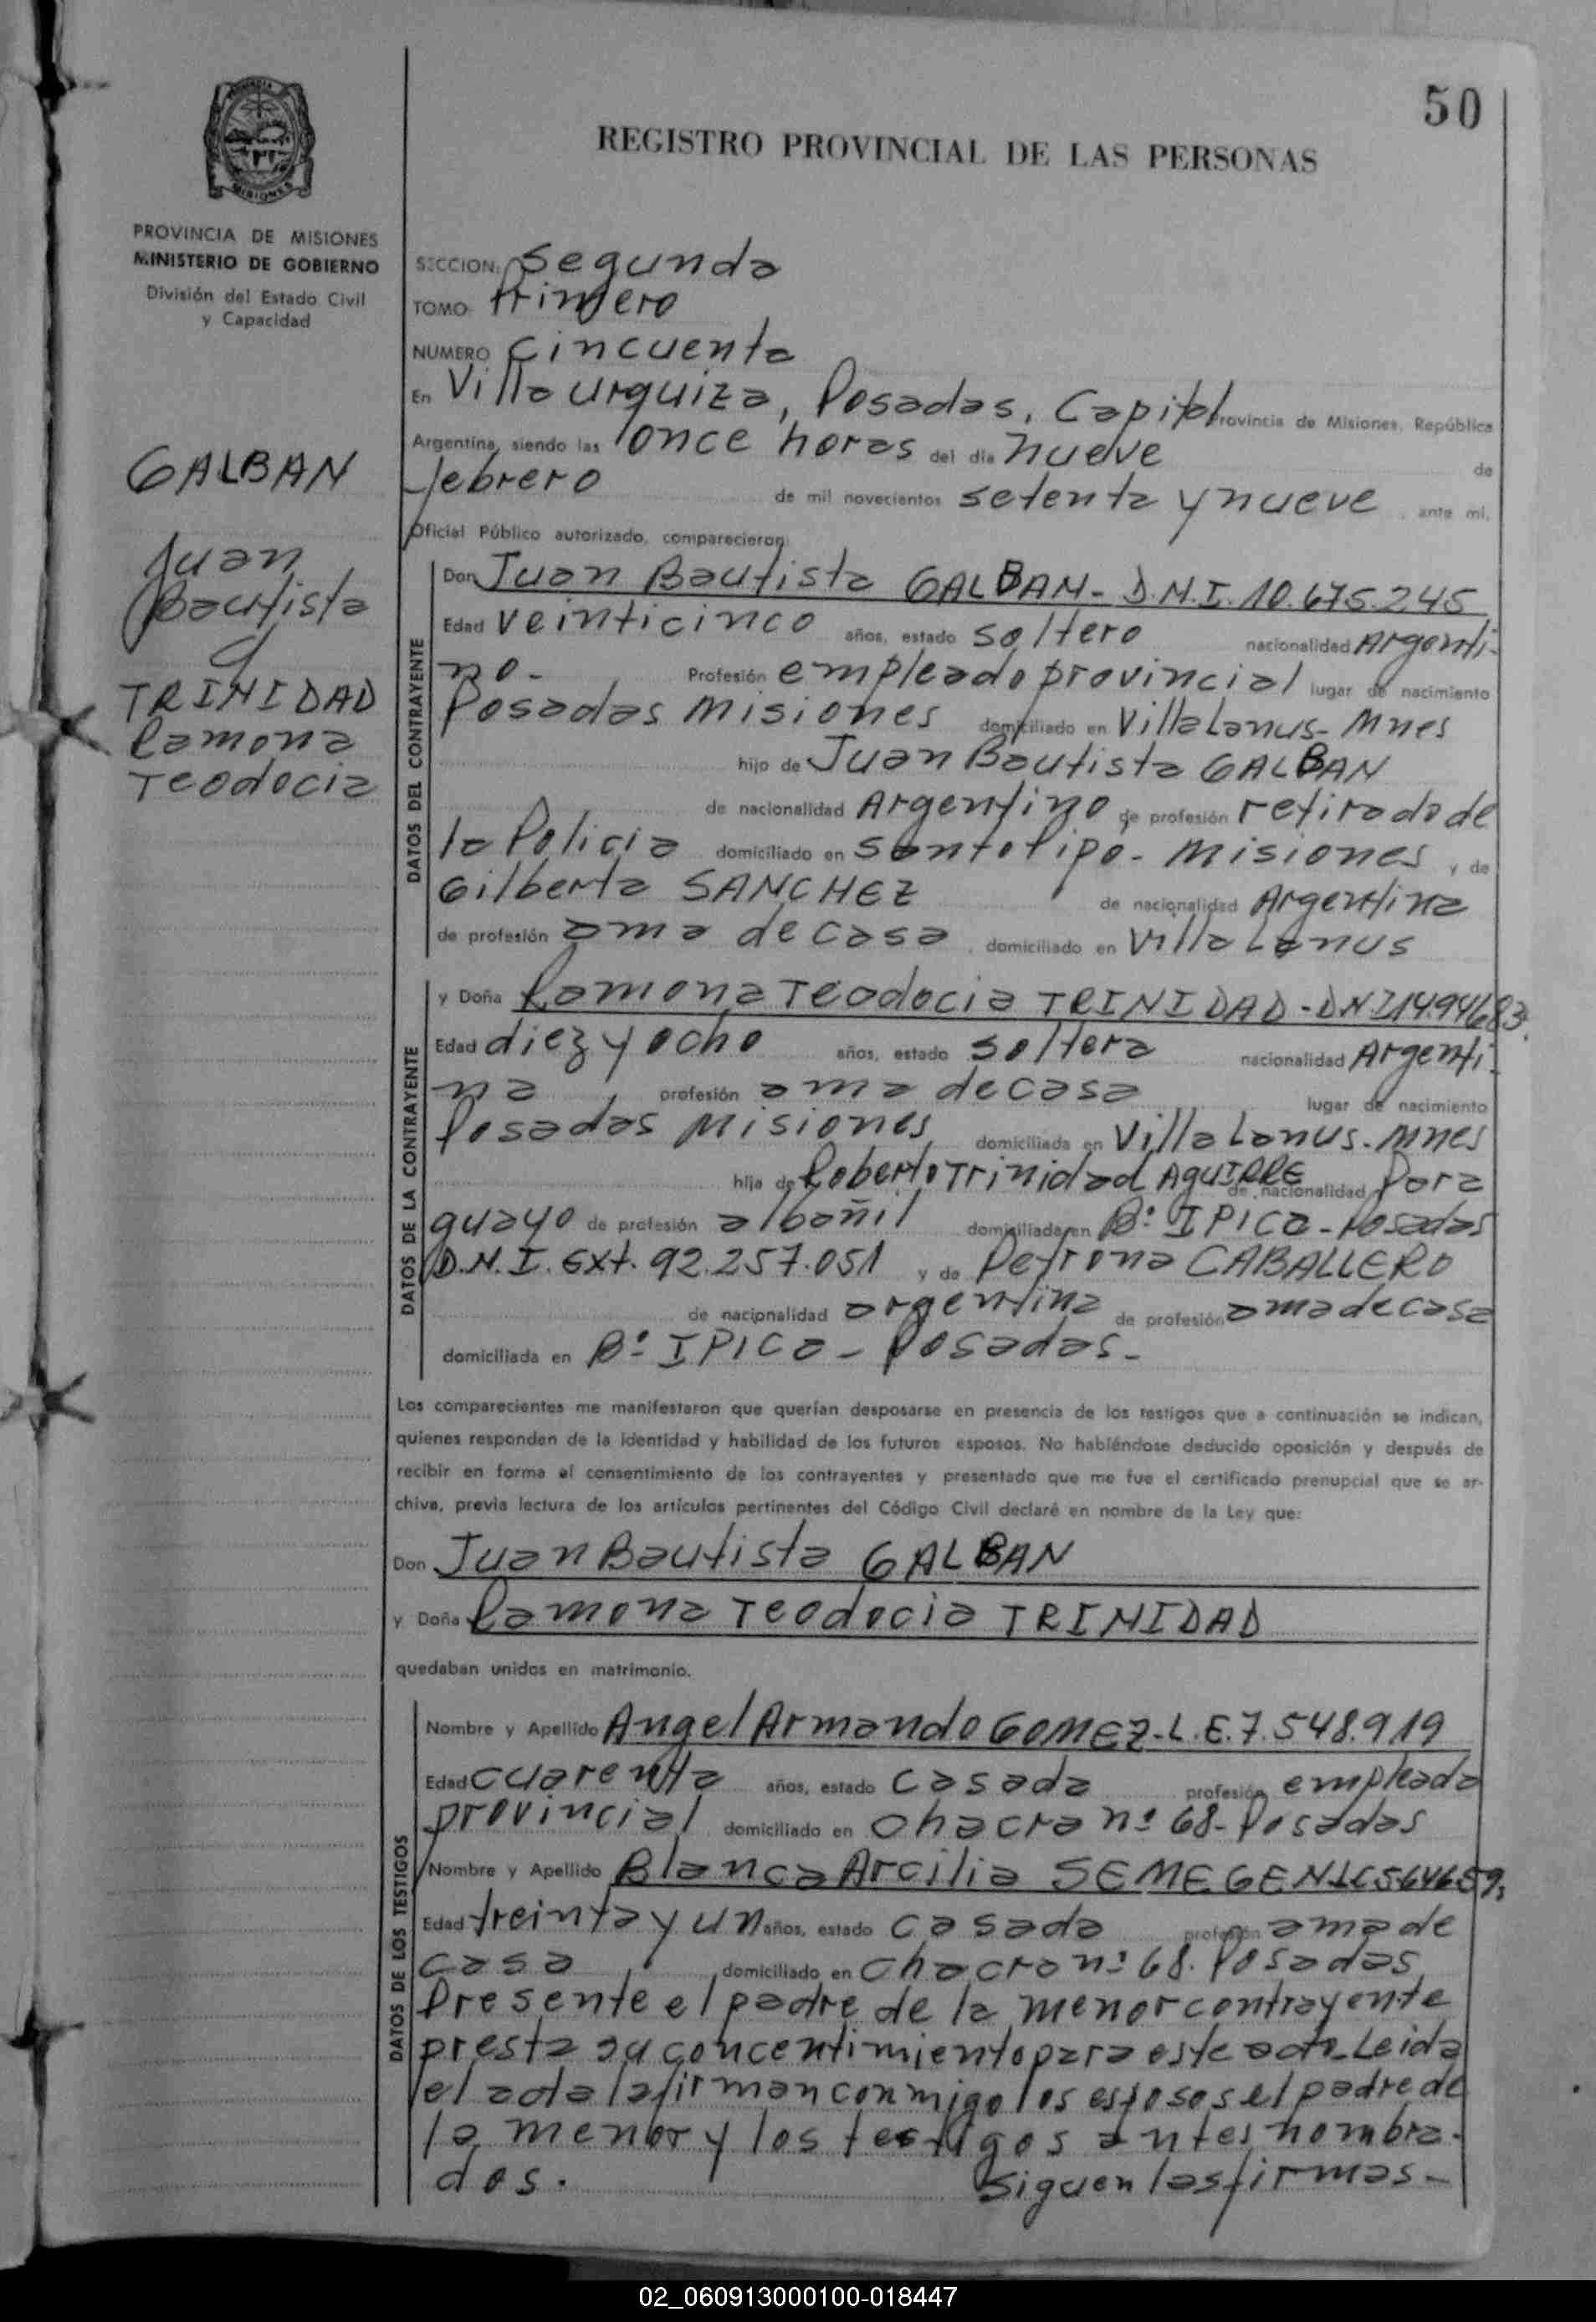 50
REGISTRO PROVINCIAL DE LAS PERSONAS
PROVINCIA DE MISIONES
MINISTERIO DE GOBIERNO
División del Estado Civil
y Capacidad
GALBAN
Juan
Bautista
y
TRINIDAD
Ramona
Teodocia
SECCION: Segunda
TOMO: Primero
NUMERO Cincuenta
En Villa Urquiza, Posadas, Capital Provincia de Misiones, República
Argentina, siendo las once horas del día nueve de
febrero de mil novecientos setenta y nueve, ante mí,
Oficial Público autorizado, comparecieron:
DATOS DEL CONTRAYENTE
Don Juan Bautista GALBAN - D.N.I. 10.675.245
Edad veinticinco años, estado soltero nacionalidad Argenti-
no- Profesión empleado provincial lugar de nacimiento
Posadas Misiones domiciliado en Villa Lanus- Mnes
hijo de Juan Bautista GALBAN
de nacionalidad Argentino de profesión retirado de
la Policia domiciliado en Santo Pipo- Misiones, y de
Gilberta SANCHEZ de nacionalidad Argentina
de profesión ama de casa, domiciliado en Villa Lanus
DATOS DE LA CONTRAYENTE
y Doña Ramona Teodocia TRINIDAD - DNI 14.94683.
Edad diez y ocho años, estado soltera nacionalidad Argenti-
na, profesión ama de casa lugar de nacimiento
Posadas Misiones domiciliada en Villa Lanus- Mnes
hija de Roberto Trinidad AGUIRRE de nacionalidad Para
guayo de profesión albañil domiciliada en Bº IPICA - Posadas
D.N.I. Ext. 92.257.051 y de Petrona CABALLERO
de nacionalidad argentina de profesión ama de casa
domiciliada en Bº IPICA - Posadas-
Los comparecientes me manifestaron que querían desposarse en presencia de los testigos que a continuación se indican,
quienes responden de la identidad y habilidad de los futuros esposos. No habiéndose deducido oposición y después de
recibir en forma el consentimiento de los contrayentes y presentado que me fue el certificado prenupcial que se ar-
chiva, previa lectura de los artículos pertinentes del Código Civil declaré en nombre de la Ley que:
Don Juan Bautista GALBAN
y Doña Ramona Teodocia TRINIDAD
quedaban unidos en matrimonio.
DATOS DE LOS TESTIGOS
Nombre y Apellido Angel Armando GOMEZ - L.E. 7.548.919
Edad cuarenta años, estado casado profesión empleado
provincial domiciliado en Chacra nº 68- Posadas
Nombre y Apellido Blanca Arcilia SEMEGEN
Edad treinta y un años, estado casada profesión ama de
casa domiciliado en Chacra nº 68. Posadas
Presente el padre de la menor contrayente
presta su concentimiento para este acto- Leida
el acta la firman conmigo los esposos el padre de
la menor y los testigos antes nombra-
dos. Siguen las firmas-
02_060913000100-018447